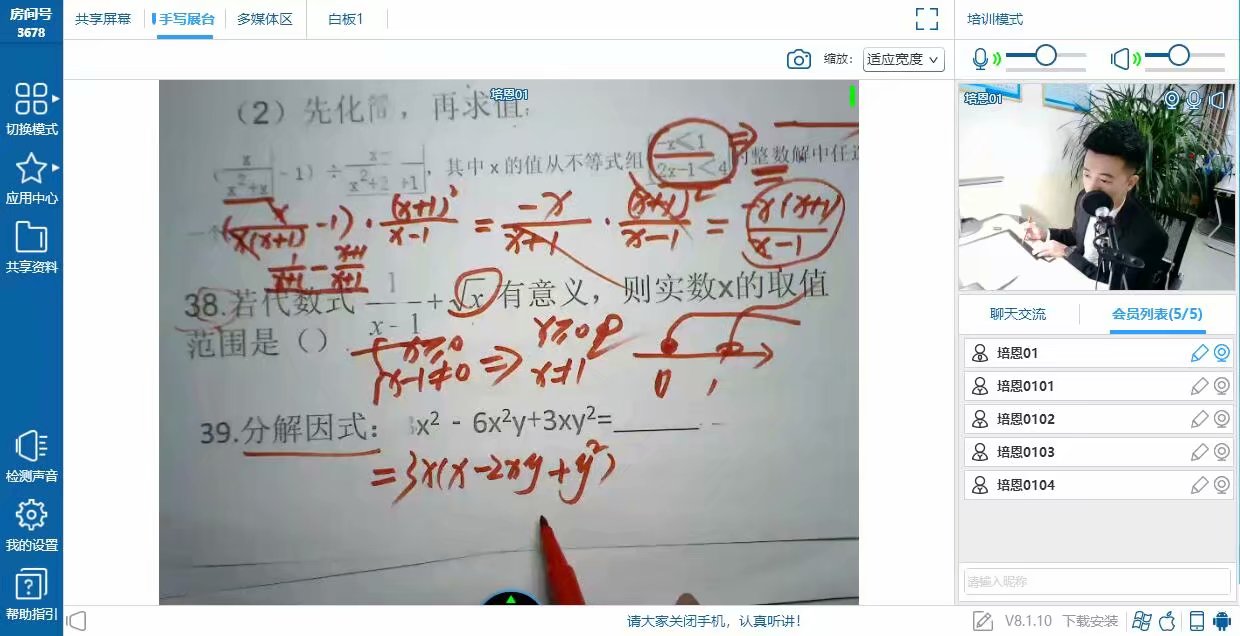 房间号
3678
共享屏幕
手写展台
多媒体区
白板1
培训模式
缩放：
适应宽度
切换模式
应用中心
共享资料
检测声音
我的设置
帮助指引
培恩01
（2）先化简，再求值：
-1）÷
，其中x的值从不等式组
-x≤1
2x-1<4
的整数解中任选
一个
(x/x(x+1) -1)·(x+1)²/x-1 = -x/x+1·(x+1)²/x-1 = -x(x+1)/x-1
1/x+1 - x+1/x+1
38.若代数式 1/x-1 +√x 有意义，则实数x的取值
范围是（）
x≥0
x-1≠0 ⇒
x≥0
x≠1
0 1
39.分解因式：3x² - 6x²y+3xy²=______
=3x(x-2xy+y²)
培恩01
聊天交流
会员列表(5/5)
培恩01
培恩0101
培恩0102
培恩0103
培恩0104
请输入昵称
请大家关闭手机，认真听讲！
V8.1.10
下载安装